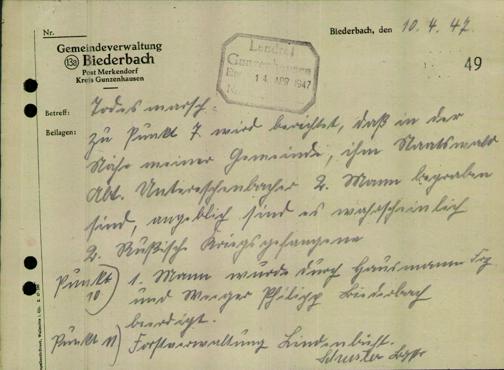 Nr.
Gemeindeverwaltung
(13a) Biederbach
Post Merkendorf
Kreis Gunzenhausen
Biederbach, den 10. 4. 47.
Landrat
Gunzenhausen
14. APR 1947
49
Betreff: Todesmarsch.
Beilagen:
Zu Punkt 7 wird berichtet, daß in der
Nähe meiner Gemeinde, ihm Staatswald
Abt. Unterschenbacher 2. Mann begraben
sind, angeblich sind es wahrscheinlich
2. Rußische Kriegsgefangene
Punkt 10) 1. Mann wurde durch Hausmann
und Weger Philipp Biederbach
beerdigt.
Punkt 11) Forstverwaltung Lindenbühl.
Schuster